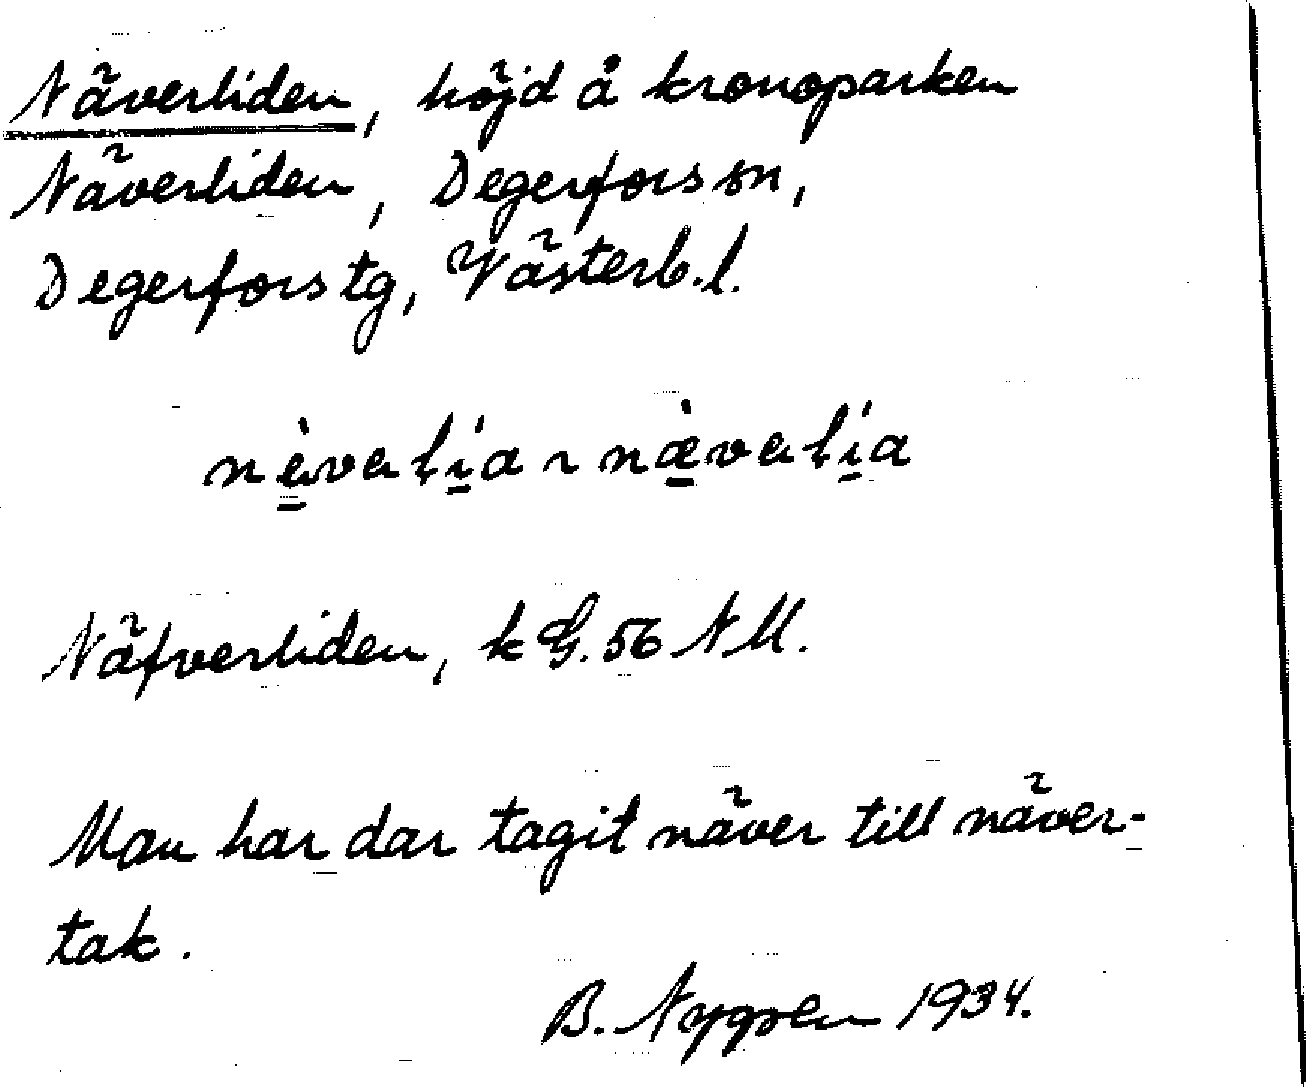 Näverliden, höjd å kronoparken
Näverliden, Degerfors sn,
Degerfors tg, Västerb. l.
nèvalía ~ nævalía
Näfverliden, k G. 56 NM.
Man har där tagit näver till näver-
tak.
B. Nygren 1934.